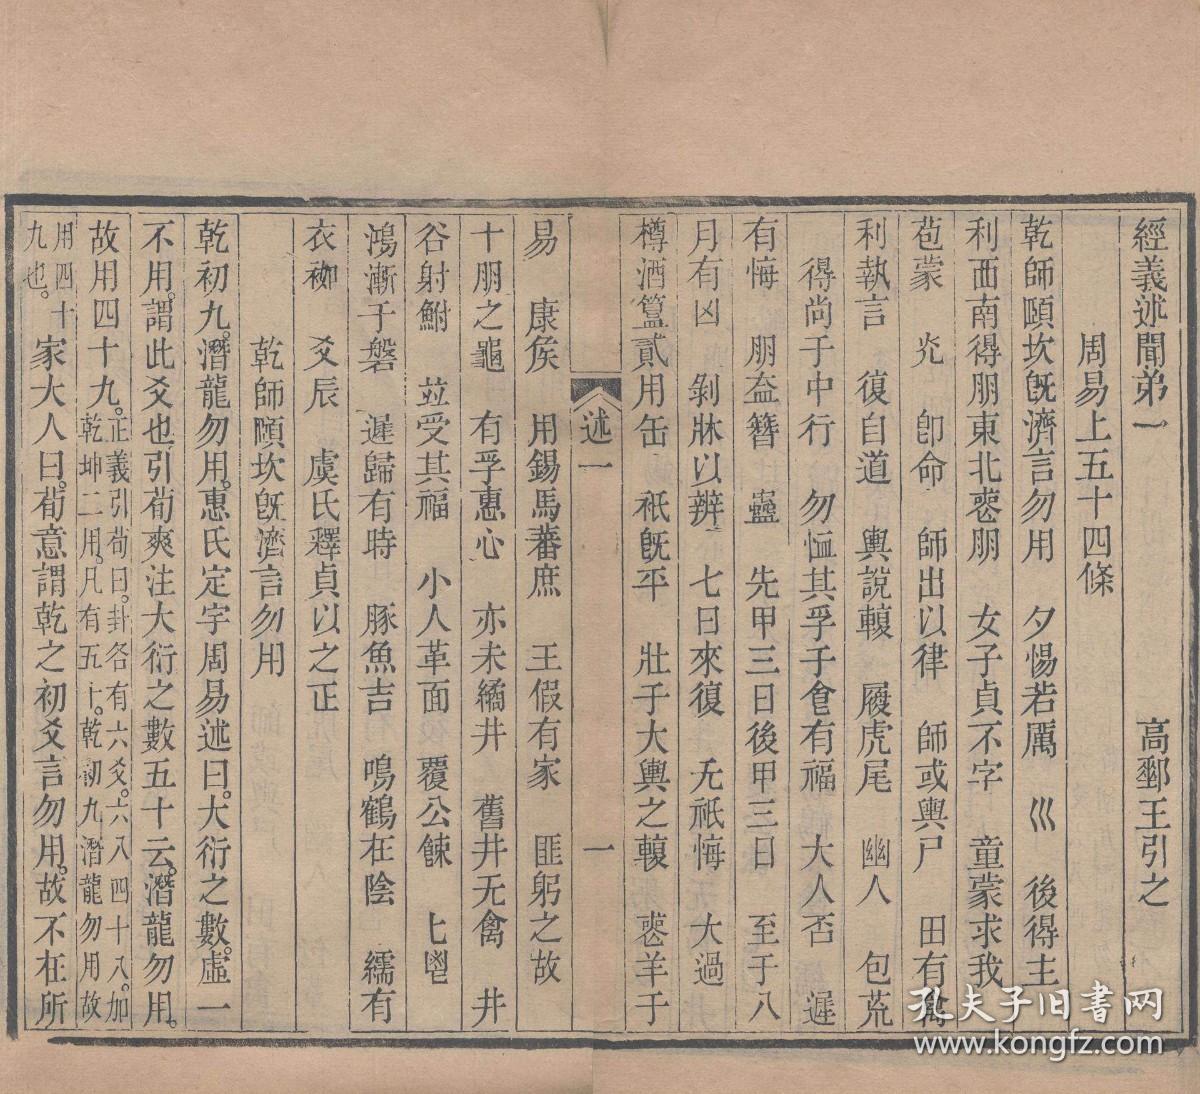 經義述聞弟一　　　　　　　高郵王引之
周易上五十四條
乾師頤坎既濟言勿用　夕惕若厲　巛　後得主
利西南得朋東北喪朋　女子貞不字　童蒙求我
苞蒙　　即命　師出以律　師或輿尸　田有禽
利執言　復自道　輿說輹　履虎尾　幽人　包荒
得尚于中行　勿恤其孚于食有福　大人否　遲
有悔　朋盍簪　蠱　先甲三日後甲三日　至于八
月有凶　剝牀以辨　七日來復　无祇悔　大過
樽酒簋貳用缶　祇既平　壯于大輿之輹　喪羊于
述一　　一
易　康矦　用錫馬蕃庶　王假有家　匪躬之故
十朋之龜　有孚惠心　亦未繘井　舊井无禽　井
谷射鮒　竝受其福　小人革面　覆公餗　匕鬯
鴻漸于磐　遲歸有時　豚魚吉　鳴鶴在陰　繻有
衣袽　爻辰　虞氏釋貞以之正
乾師頤坎既濟言勿用
乾初九。潛龍勿用。惠氏定宇周易述曰。大衍之數。虛一
不用。謂此爻也。引荀爽注大衍之數五十云。潛龍勿用。
故用四十九。正義引荀曰。卦各有六爻。六八四十八。加乾坤二用。凡有五十。乾初九潛龍勿用故
用四十九也。家大人曰。荀意謂乾之初爻言勿用。故不在所
孔夫子旧书网
www.kongfz.com